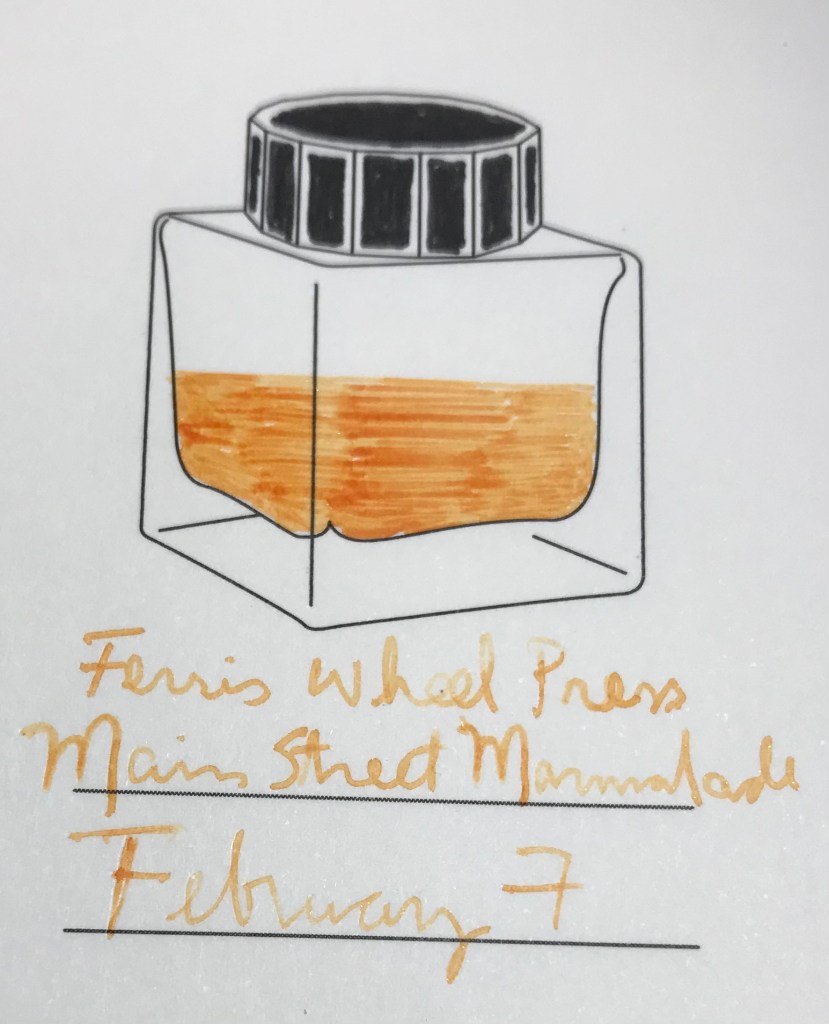 Ferris Wheel Press
Main Street Marmalade
February 7